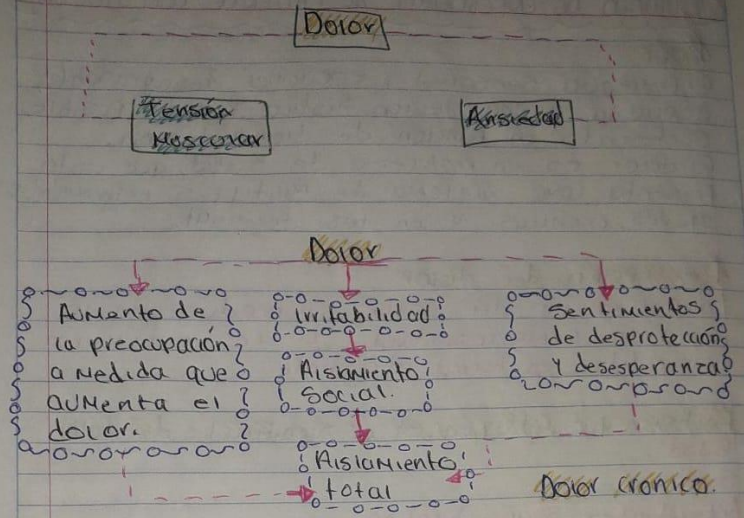 Dolor
Tensión
Muscular
Ansiedad
Dolor
Aumento de
la preocupación
a medida que
aumenta el
dolor.
Irritabilidad
Aislamiento
Social.
Aislamiento
total
Sentimientos
de desprotección
y desesperanza
Dolor cronico.